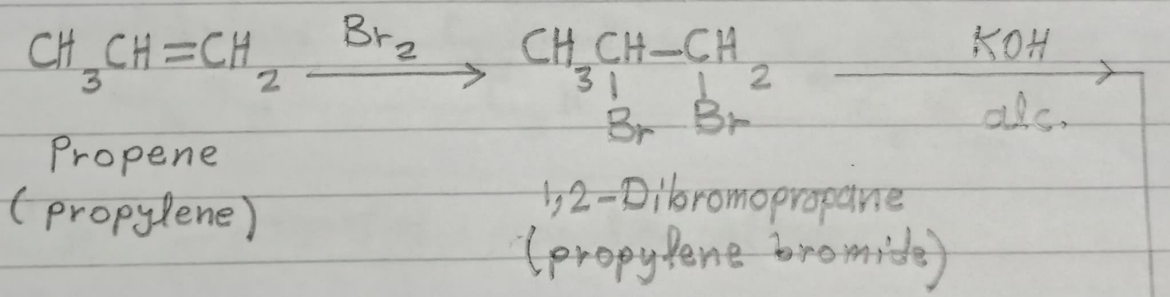 CH₃CH=CH₂ Br₂ CH₃CH–CH₂ KOH
Br Br alc.
Propene
(propylene)
1,2-Dibromopropane
(propylene bromide)